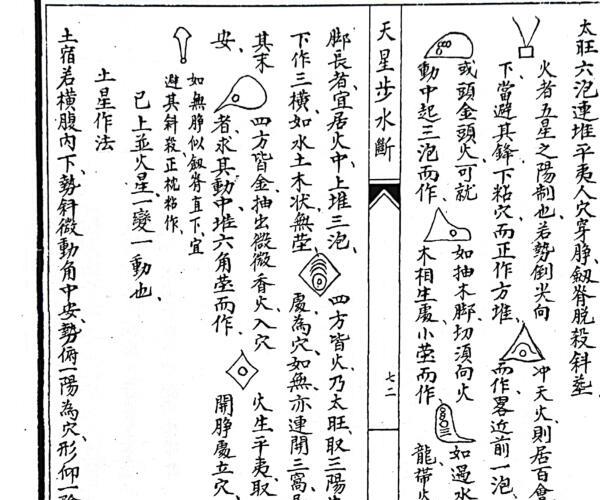 太旺六泡連堆平夷人穴穿脖劔脊脫殺斜塟
火者五星之陽制也若勢倒尖向
下當避其鋒下粘穴而正作方堆
冲天火則居百會
而作畧近前一泡
或頭金頭火可就
動中起三泡而作
如抽木脚切須向火
木相生處小塟而作
如過水
龍帶火
天星步水斷
七二
脚長者宜居火中上堆三泡
下作三橫如水土木狀無塟
四方皆火乃太旺取三陽
處為穴如無亦連開三窩
其末
安
四方皆金抽出微微香火入穴
者求其動中堆六角塟而作
火生平夷取
開脖處立穴
如無脖似劔脊直下宜
避其斜殺正枕粘作
已上並火星一變一動也
土星作法
土宿若橫腹內下勢斜微動角中安勢俯一陽為穴形仰一